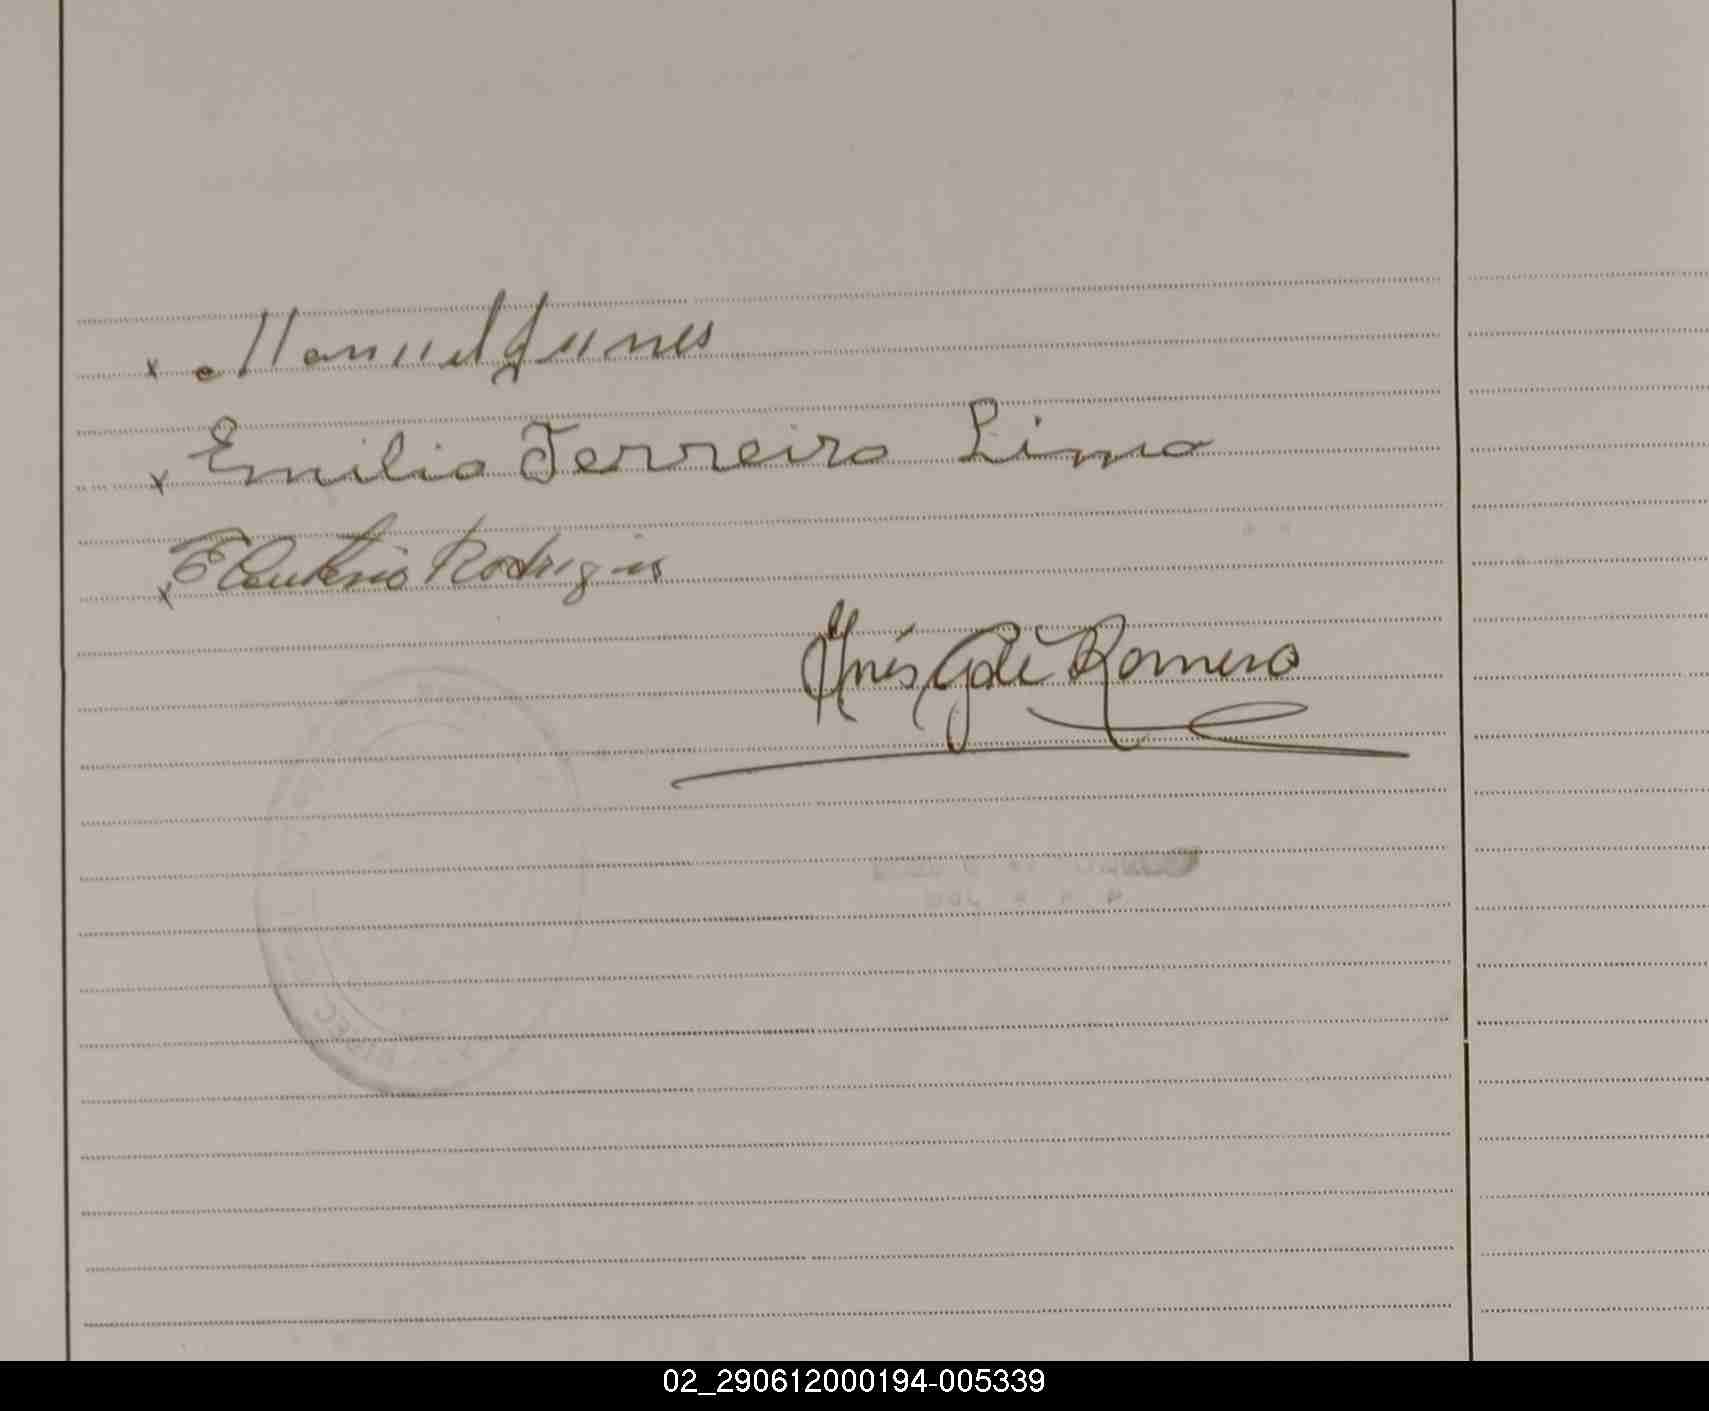 x Manuel Funes
x Emilio Ferreiro Lima
x Eleuterio Rodrigues
Inés G. de Romero
02_290612000194-005339